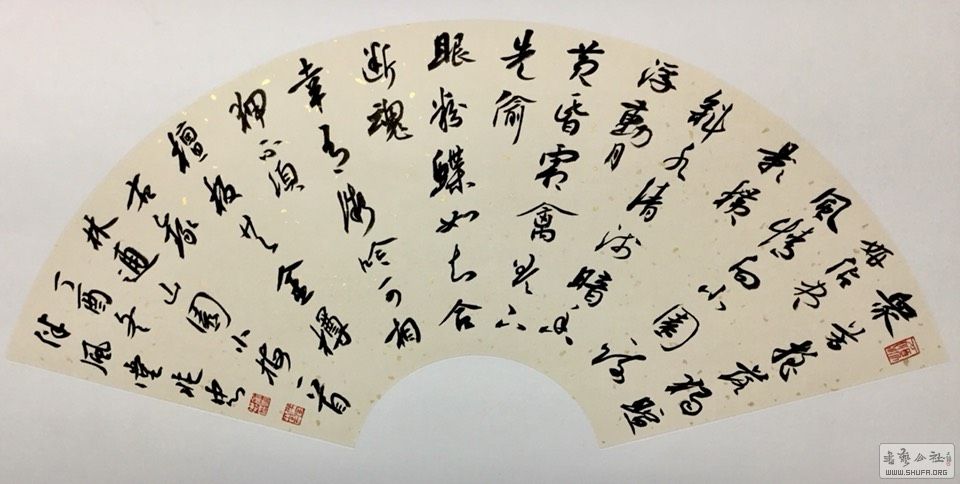 衆芳摇落獨暄
妍佔尽
風情向小園疏
影横
斜水清浅暗香
浮動月
黄昏霜禽欲下
先偷
眼粉蝶如知合
断魂
幸有微吟可相
狎不須
檀板共金樽
右录
林逋山園小梅一首
丁酉冬
風堂兆
書藝公社
WWW.SHUFA.ORG